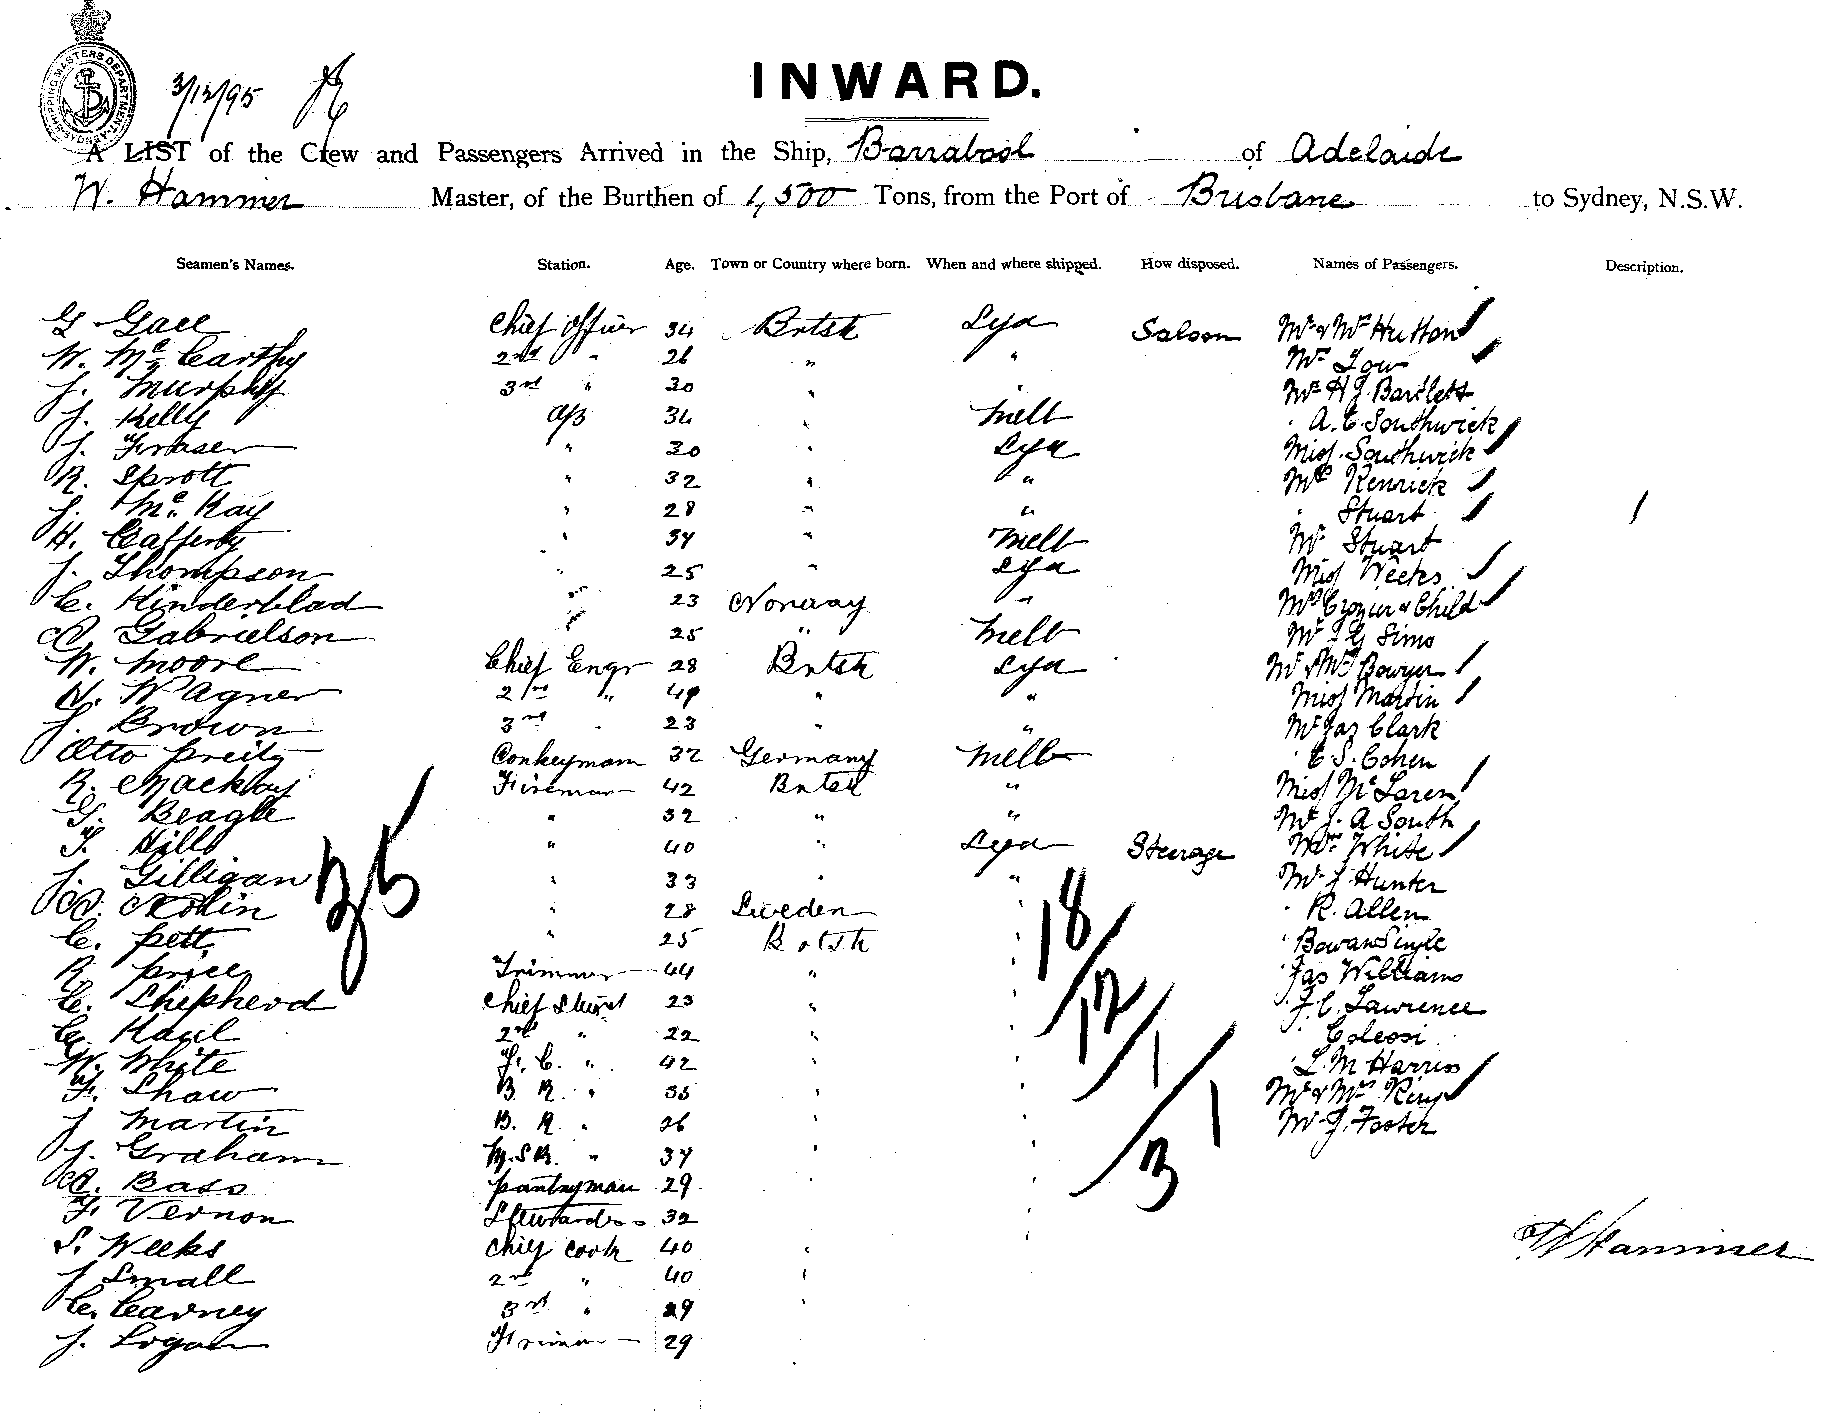 SHIPPING MASTERS DEPARTMENT
3/12/95
INWARD.
A LIST of the Crew and Passengers Arrived in the Ship, Barrabool of Adelaide
W. Hammer Master, of the Burthen of 1,500 Tons, from the Port of Brisbane to Sydney, N.S.W.
Seamen's Names. Station. Age. Town or Country where born. When and where shipped. How disposed. Names of Passengers. Description.
G Gall Chief Officer 34 Brtsh Syd Saloon Mr & Mrs Hutton
W. McCarthy 2nd " 26 " " Mr Low
J. Murphy 3rd " 30 " " Mr H J Bartlett
J. Kelly A/B 34 " Melb " A. C. Southwick
J. Fraser " 30 " Syd Miss Southwick
R. Sprott " 32 " " Mrs Kenrick
J. McKay " 28 " " " Stuart
H. Cafferty " 34 " Melb Mr Stuart
J. Thompson " 25 " Syd Miss Weeks
C. Kinderblad " 23 Norway " Mrs Crozier & Child
A. Gabrielson " 25 " Melb Mr J G Sims
W. Moore Chief Engr 28 Brtsh Syd Mr & Mrs Bowyer
N. Wagner 2nd " 49 " " Miss Martin
J. Brown 3rd " 23 " " Mr Jas Clark
Otto Preitz Donkeyman 32 Germany Melb " C. S. Cohen
R. Mackay Fireman 42 Brtsh " Miss McLaren
G. Beagle " 32 " " Mr J. A South
T. Hill " 40 " Syd Steerage Mrs White
J. Gilligan " 33 " " Mr J Hunter
A. Nolin " 28 Sweden " " R. Allen
C. Pett " 25 Brtsh " " Bowan Singh
R. Price Trimmer 44 " " " Jas Williams
C. Shepherd Chief Stewd 23 " " " F. C. Lawrence
C. Hazil 2nd " 22 " " " Coleosi
W. White F. C. " 42 " " " L. M Harris
F. Shaw B R. " 35 " " Mr & Mrs King
J Martin B. R. " 26 " " Mr J. Foster
J. Graham M.S.R. " 34 " "
A. Bass Pantryman 29 " "
F. Vernon Stewardess 32 " "
S. Weeks Chief Cook 40 " "
J Small 2nd " 40 "
C. Carney 3rd " 29 "
J. Logan Trimmer 29 "
35
18
12
1
3
1
W Hammer